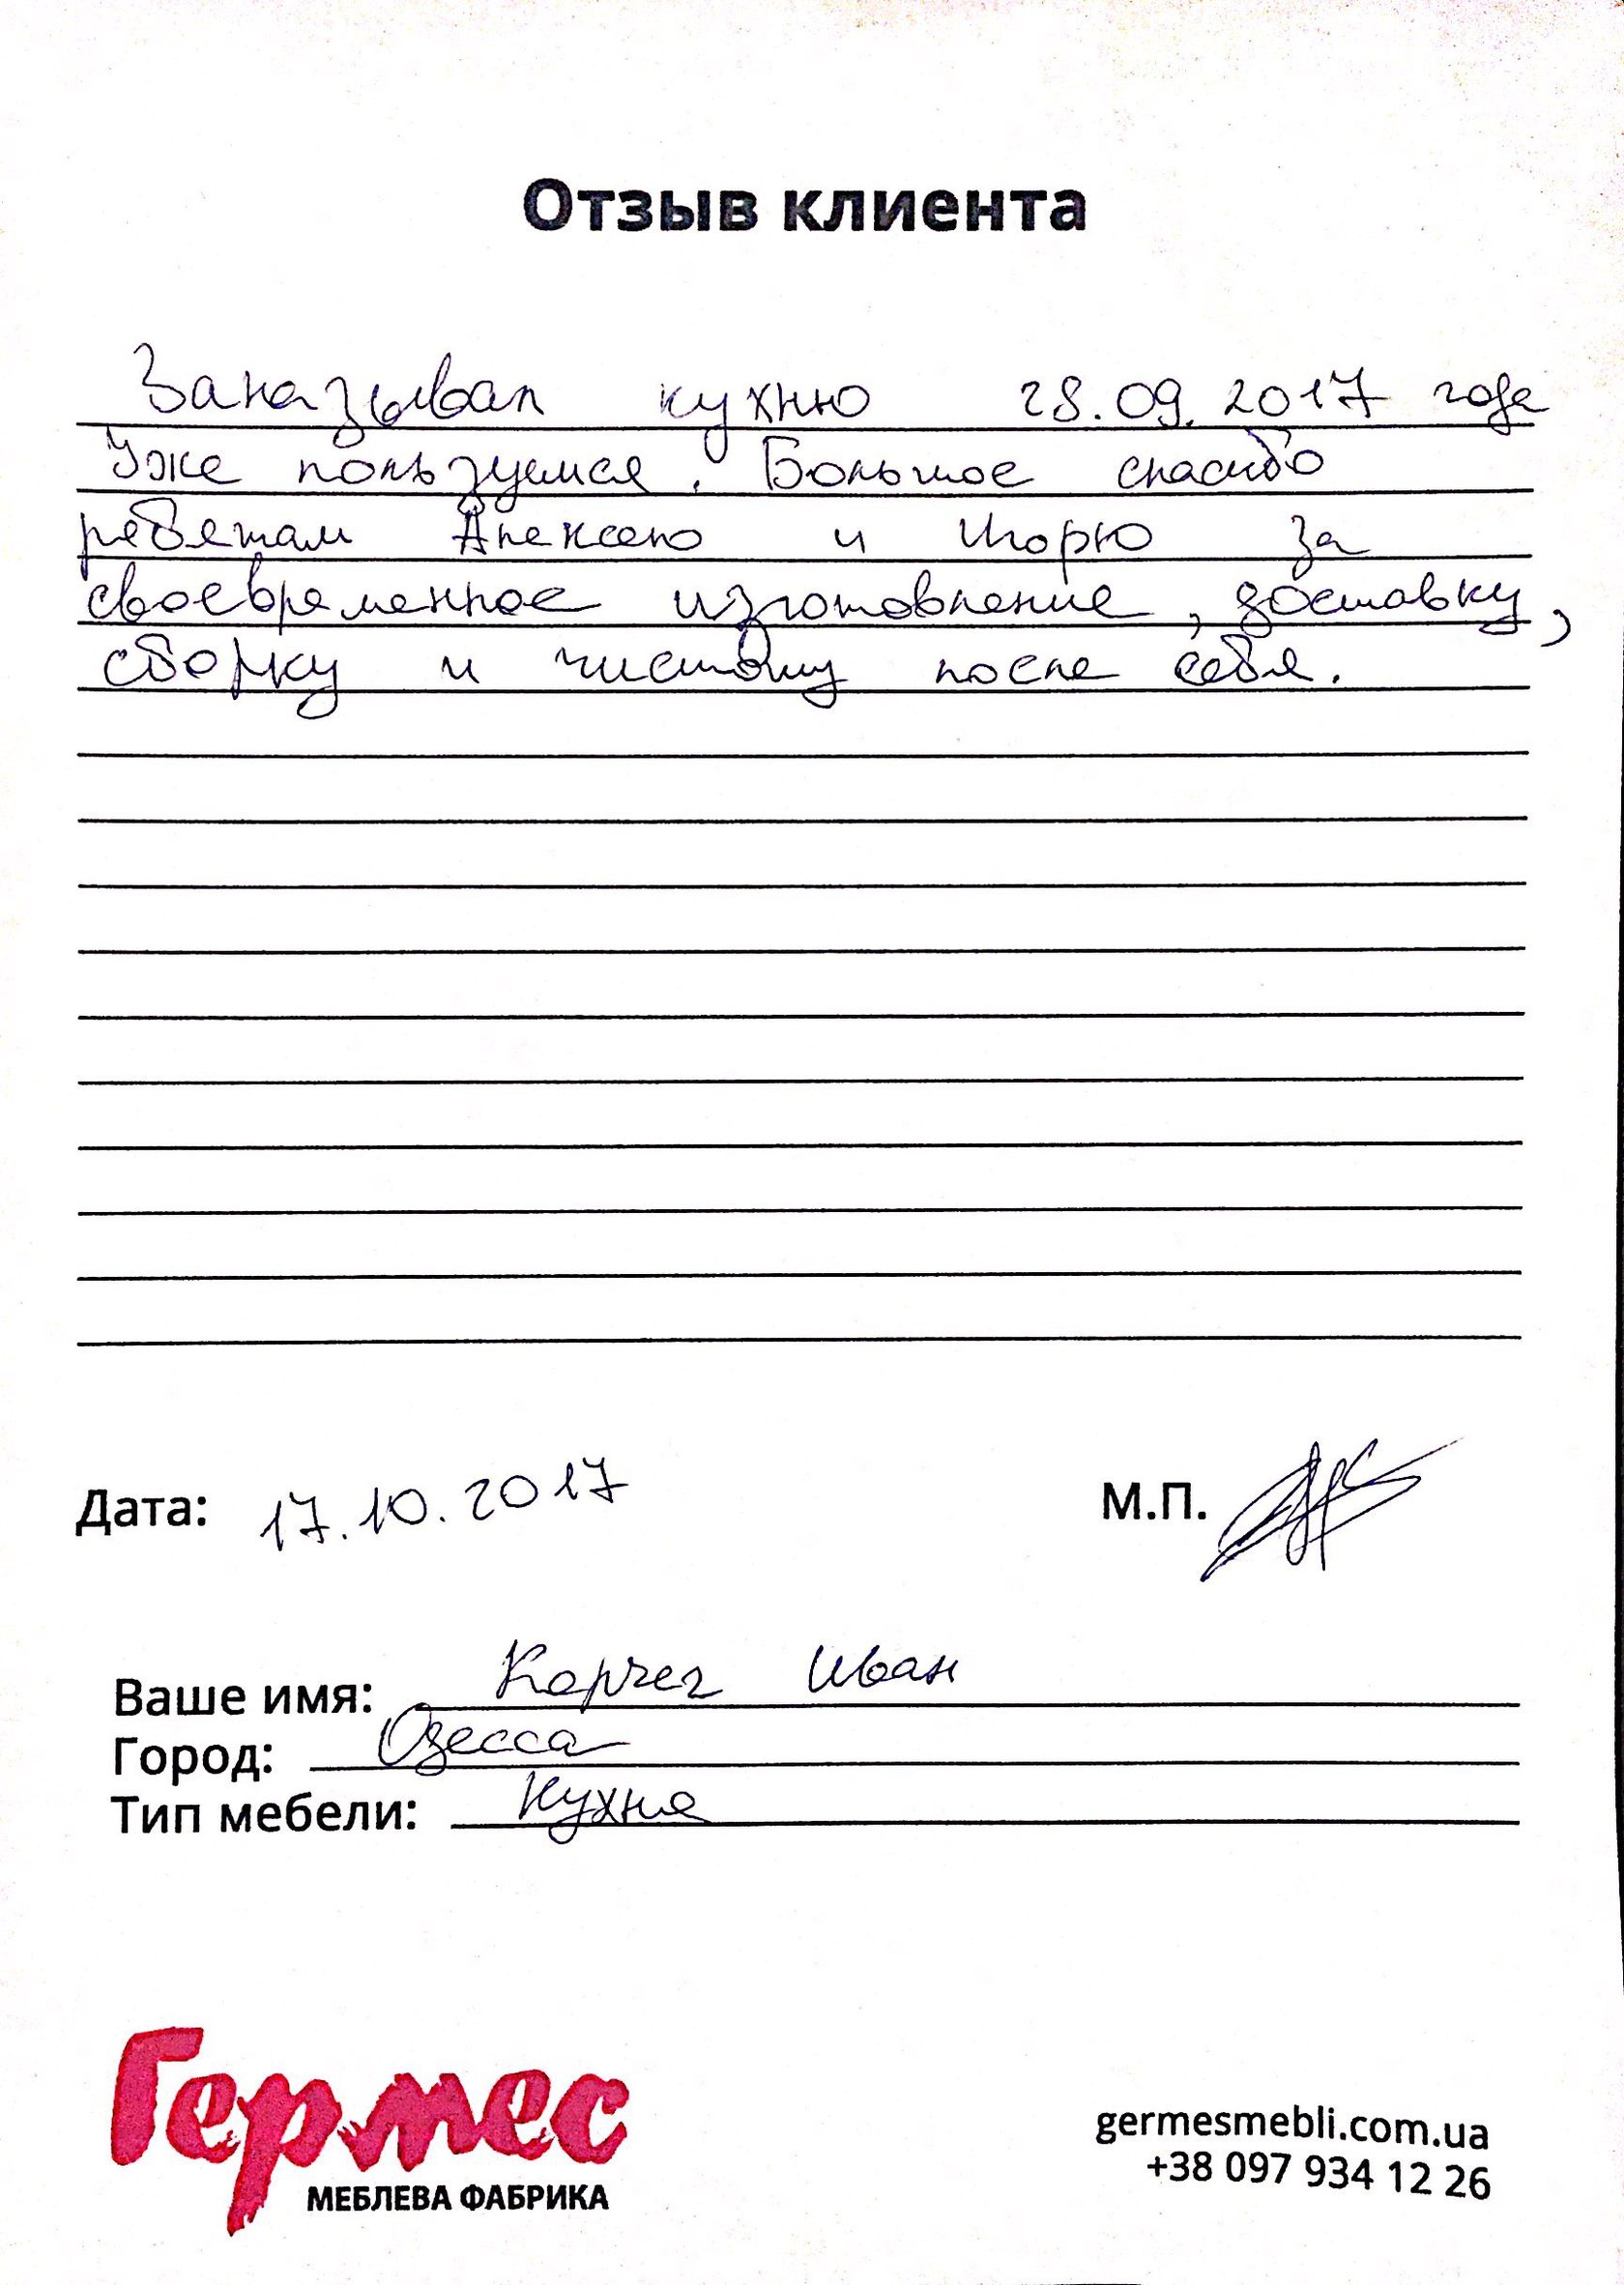 Отзыв клиента
Заказывал кухню 28.09.2017 года
Уже пользуемся. Большое спасибо
ребятам Алексею и Игорю за
своевременное изготовление, доставку,
сборку и чистоту после себя.
Дата: 17.10.2017 М.П.
Ваше имя: Иван
Город: Одесса
Тип мебели: Кухня
Гермес
МЕБЛЕВА ФАБРИКА
germesmebli.com.ua
+38 097 934 12 26